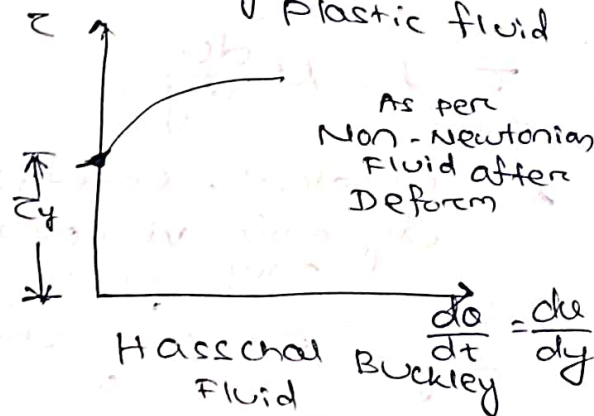 plastic fluid
τ
As per
Non-Newtonian
Fluid after
Deform
τy
dθ/dt = du/dy
Hasschal Buckley
Fluid